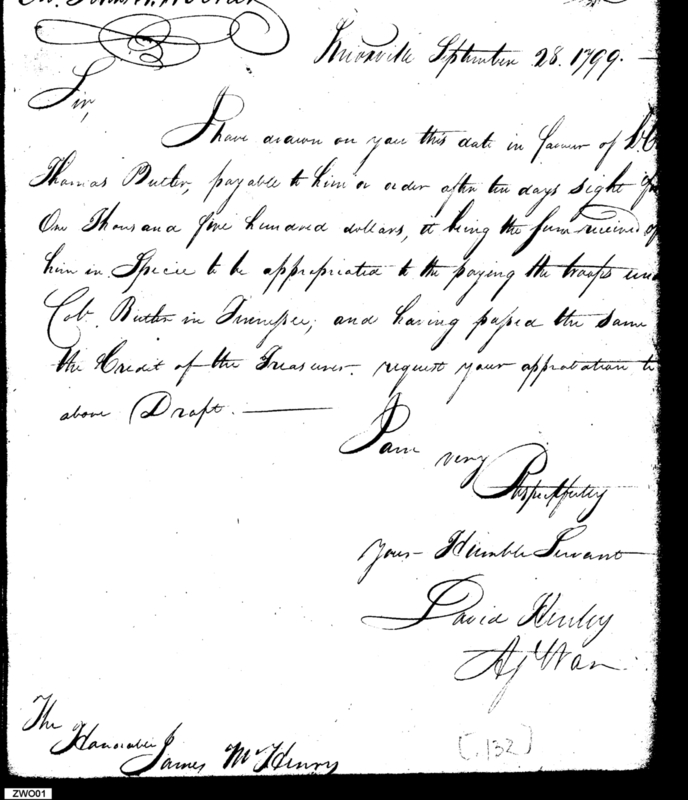 Knoxville September 28. 1799.
Sir,
I have drawn on you this date in favour of
Thomas Butler, payable to him or order after ten days sight for
One Thousand five hundred dollars, it being the sum received of
him in Specie to be appropriated to the paying the troops und
Col. Butler in Tennessee; and having passed the same
the Credit of the Treasurer. request your approbation to
above Draft.
I am
very
Respectfully
Your Humble Servant
David Henley
Ag. War
The
Honorable
James McHenry
[132]
ZWO01